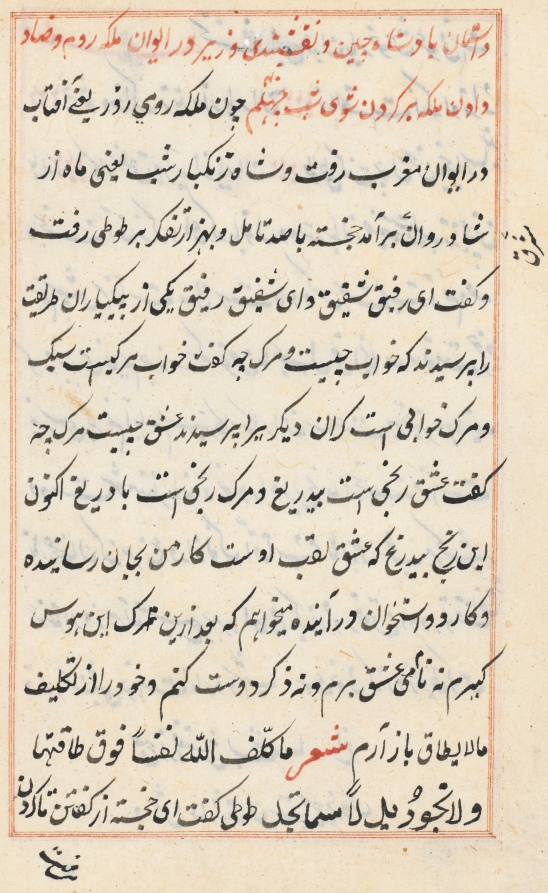 داستان پادشاه چین و نقشبندی وزیر در ایوان ملکه روم و ضاد
دادن ملکه بر کردن شوی شب چهلم چون ملکه رومی اذریعنے آفتاب
در ایوان مغرب رفت و شاه زنکبار شب یعنی ماه از
شادروان برآمد خجسته باصد تامل و بهزار تفکر بر طوطی رفت
شرق
و کفت ای رفیق شفیق و ای شفیق رفیق یکی از پیکیاران طریقت
را پرسیدند که خواب چیست و مرک چه کفت خواب مرکیست سبک
و مرک خوابی است کران دیکر یرا پرسیدند عشق چیست مرک چه
کفت عشق رنجی است بیدریغ و مرک رنجی است با دریغ اکنون
این رنج بیدریغ که عشق لقب اوست کار من بجان رسانیده
و کارد و استخوان در آینده میخواهم که بعد ازین ترک این هوس
کیرم نه نامی عشق برم و نه ذکر دوست کنم و خود را از تکلیف
مالا یطاق باز آرم شعر ما کلّف اللّه نفساً فوق طاقتها
ولا تجود یدٌ لاّ سما تجد طوطی کفت ای خجسته از کفتن تا کردن